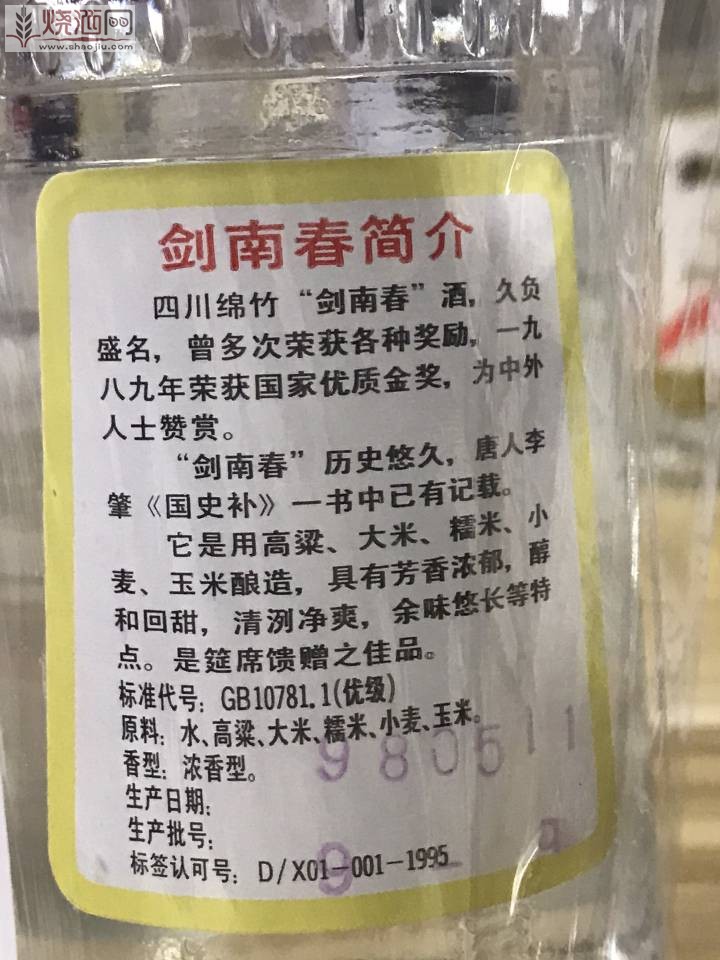 烧酒网
www.shaojiu.com
剑南春简介
四川绵竹“剑南春”酒，久负
盛名，曾多次荣获各种奖励，一九
八九年荣获国家优质金奖，为中外
人士赞赏。
“剑南春”历史悠久，唐人李
肇《国史补》一书中已有记载。
它是用高粱、大米、糯米、小
麦、玉米酿造，具有芳香浓郁，醇
和回甜，清洌净爽，余味悠长等特
点。是筵席馈赠之佳品。
标准代号：GB10781.1(优级)
原料：水、高粱、大米、糯米、小麦、玉米。
香型：浓香型。
980511
生产日期：
生产批号：
标签认可号：D/X01-001-1995